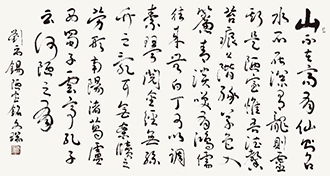 山不在高有仙則名
水不在深有龍則靈
斯是陋室惟吾德馨
苔痕上階綠草色入
簾青談笑有鴻儒
往來無白丁可以調
素琴閱金經無絲
竹之亂耳無案牘之
勞形南陽諸葛廬
西蜀子雲亭孔子
云何陋之有
劉禹錫陋室銘